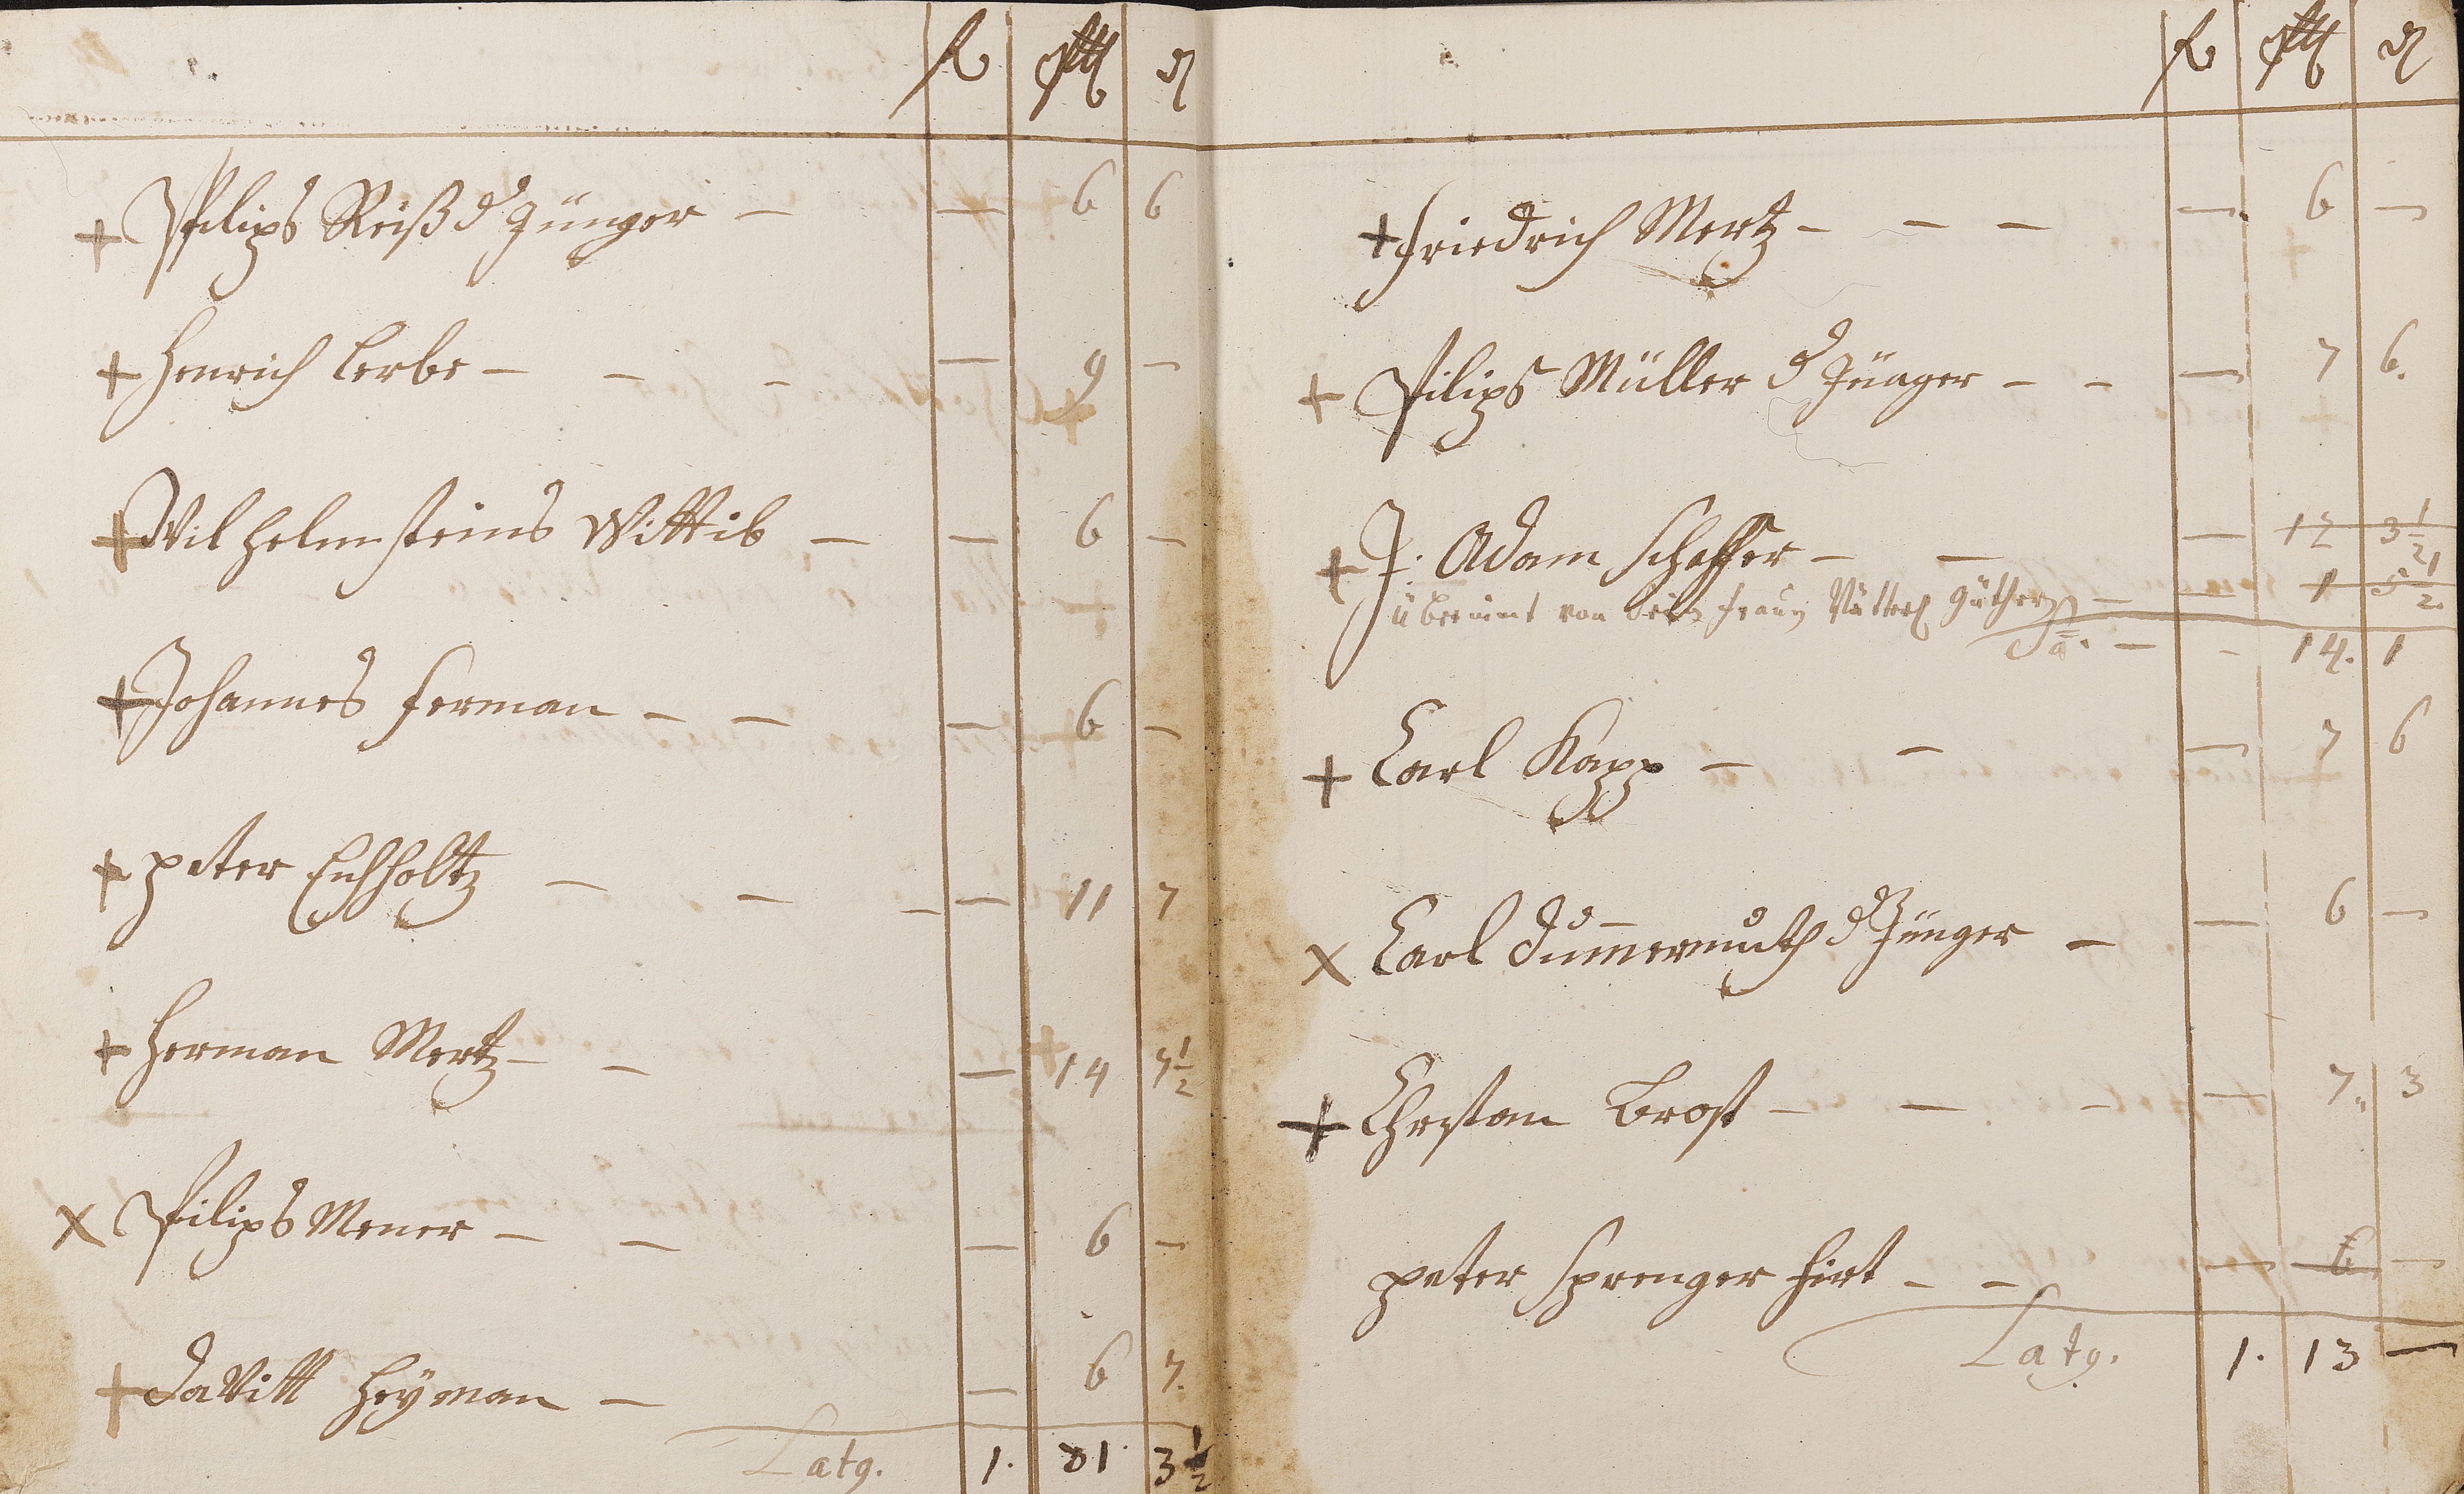 fl alb d
+ Philips Reiß d Jünger — — 6 6
+ Henrich Lerbe — — — — 9 —
+ Wilhelm steins Wittib — — 6 —
+ Johannes ferman — — — 6 —
+ peter Eichholtz — — — — 11 7
+ Herman Mertz — — — 14
x Philips Mener — — — 6 —
+ daVitt Heyman — — 6 7.
Latg. 1. 31. 3 1/2
fl alb d
+ friedrich Mertz — — — — 6 —
+ Philips Müller d Jünger — — — 7 6.
+ J: Adam Scheffer — — — 12 3 1/2
übernimt von frauen Güther — — 1 5 1/2.
Sa. — - 14. 1
+ Carl Kapp — — — 7 6
x Carl dummermuth d Jünger — — 6 —
+ Chrstan Brost — — — — 7. 3
peter Sprenger hirt — — — 6 —
Latg. 1. 13 —